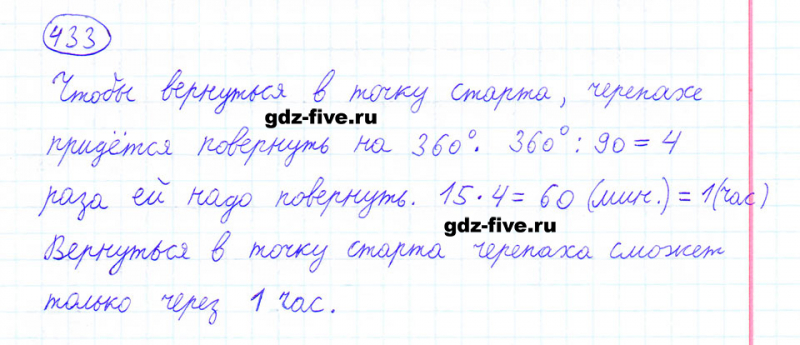 433
Чтобы вернуться в точку старта, черепахе
gdz-five.ru
придётся повернуть на 360°. 360° : 90 = 4
раза ей надо повернуть. 15 · 4 = 60 (мин.) = 1 (час)
gdz-five.ru
Вернуться в точку старта черепаха сможет
только через 1 час.